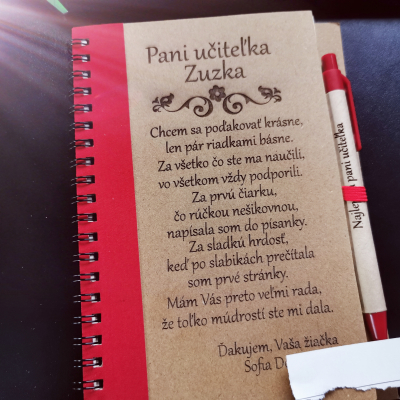 Pani učiteľka
Zuzka
Chcem sa poďakovať krásne,
len pár riadkami básne.
Za všetko čo ste ma naučili,
vo všetkom vždy podporili.
Za prvú čiarku,
čo rúčkou nešikovnou,
napísala som do písanky.
Za sladkú hrdosť,
keď po slabikách prečítala
som prvé stránky.
Mám Vás preto veľmi rada,
že toľko múdrostí ste mi dala.
Ďakujem, Vaša žiačka
Sofia
pani učiteľka